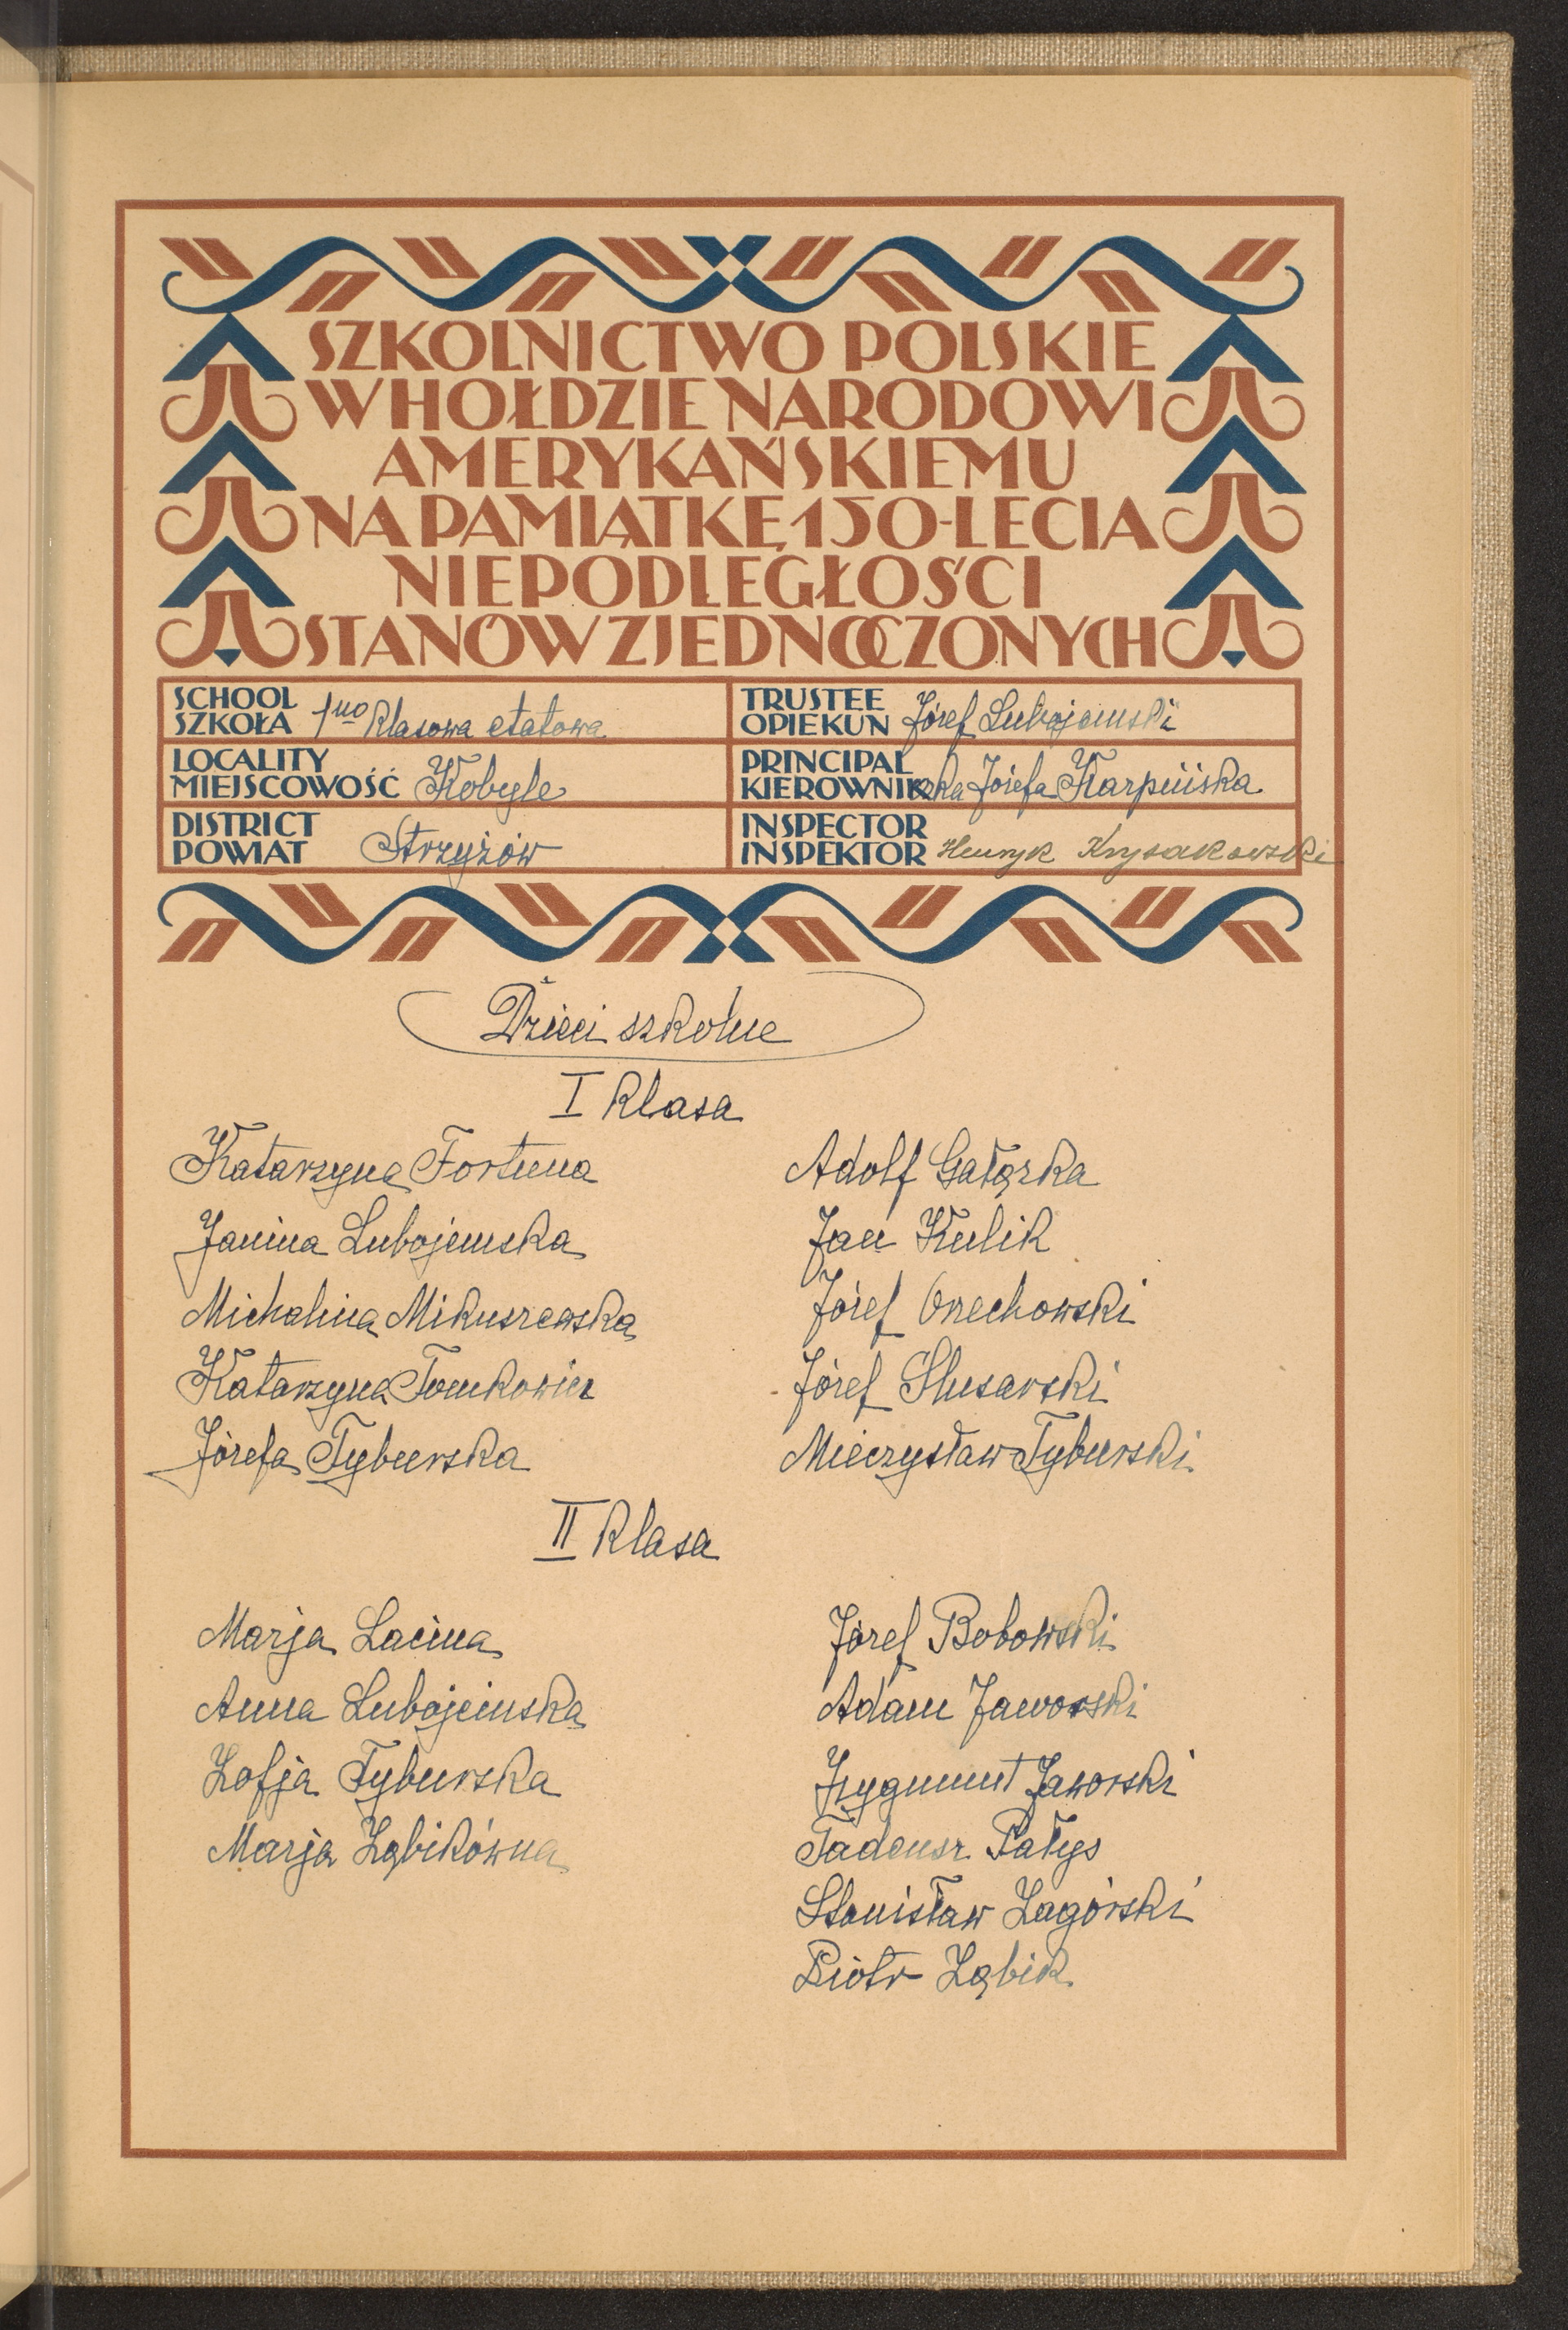 SZKOLNICTWO POLSKIE
W HOŁDZIE NARODOWI
AMERYKAŃSKIEMU
NA PAMIĄTKĘ 150-LECIA
NIEPODLEGŁOŚCI
STANÓW ZJEDNOCZONYCH
SCHOOL
SZKOŁA 1no klasowa etatowa
TRUSTEE
OPIEKUN Józef Lubojemski
LOCALITY
MIEJSCOWOŚĆ Kobyle
PRINCIPAL
KIEROWNIczka Józefa Karpińska
DISTRICT
POWIAT Strzyżów
INSPECTOR
INSPEKTOR Henryk Krysakowski
Dzieci szkolne
I klasa
Katarzyna Fortuna
Janina Lubojemska
Michalina Mikuszewska
Katarzyna Tomkowicz
Józefa Tyburska
Adolf Gałązka
Jan Kulik
Józef Orzechowski
Józef Slusarski
Mieczysław Tyburski
II klasa
Marja Lacina
Anna Lubojemska
Zofja Tyburska
Marja Ząbikówna
Józef Bobowski
Adam Jaworski
Zygmunt Jaworski
Tadeusz Pałys
Stanisław Zagórski
Piotr Ząbik